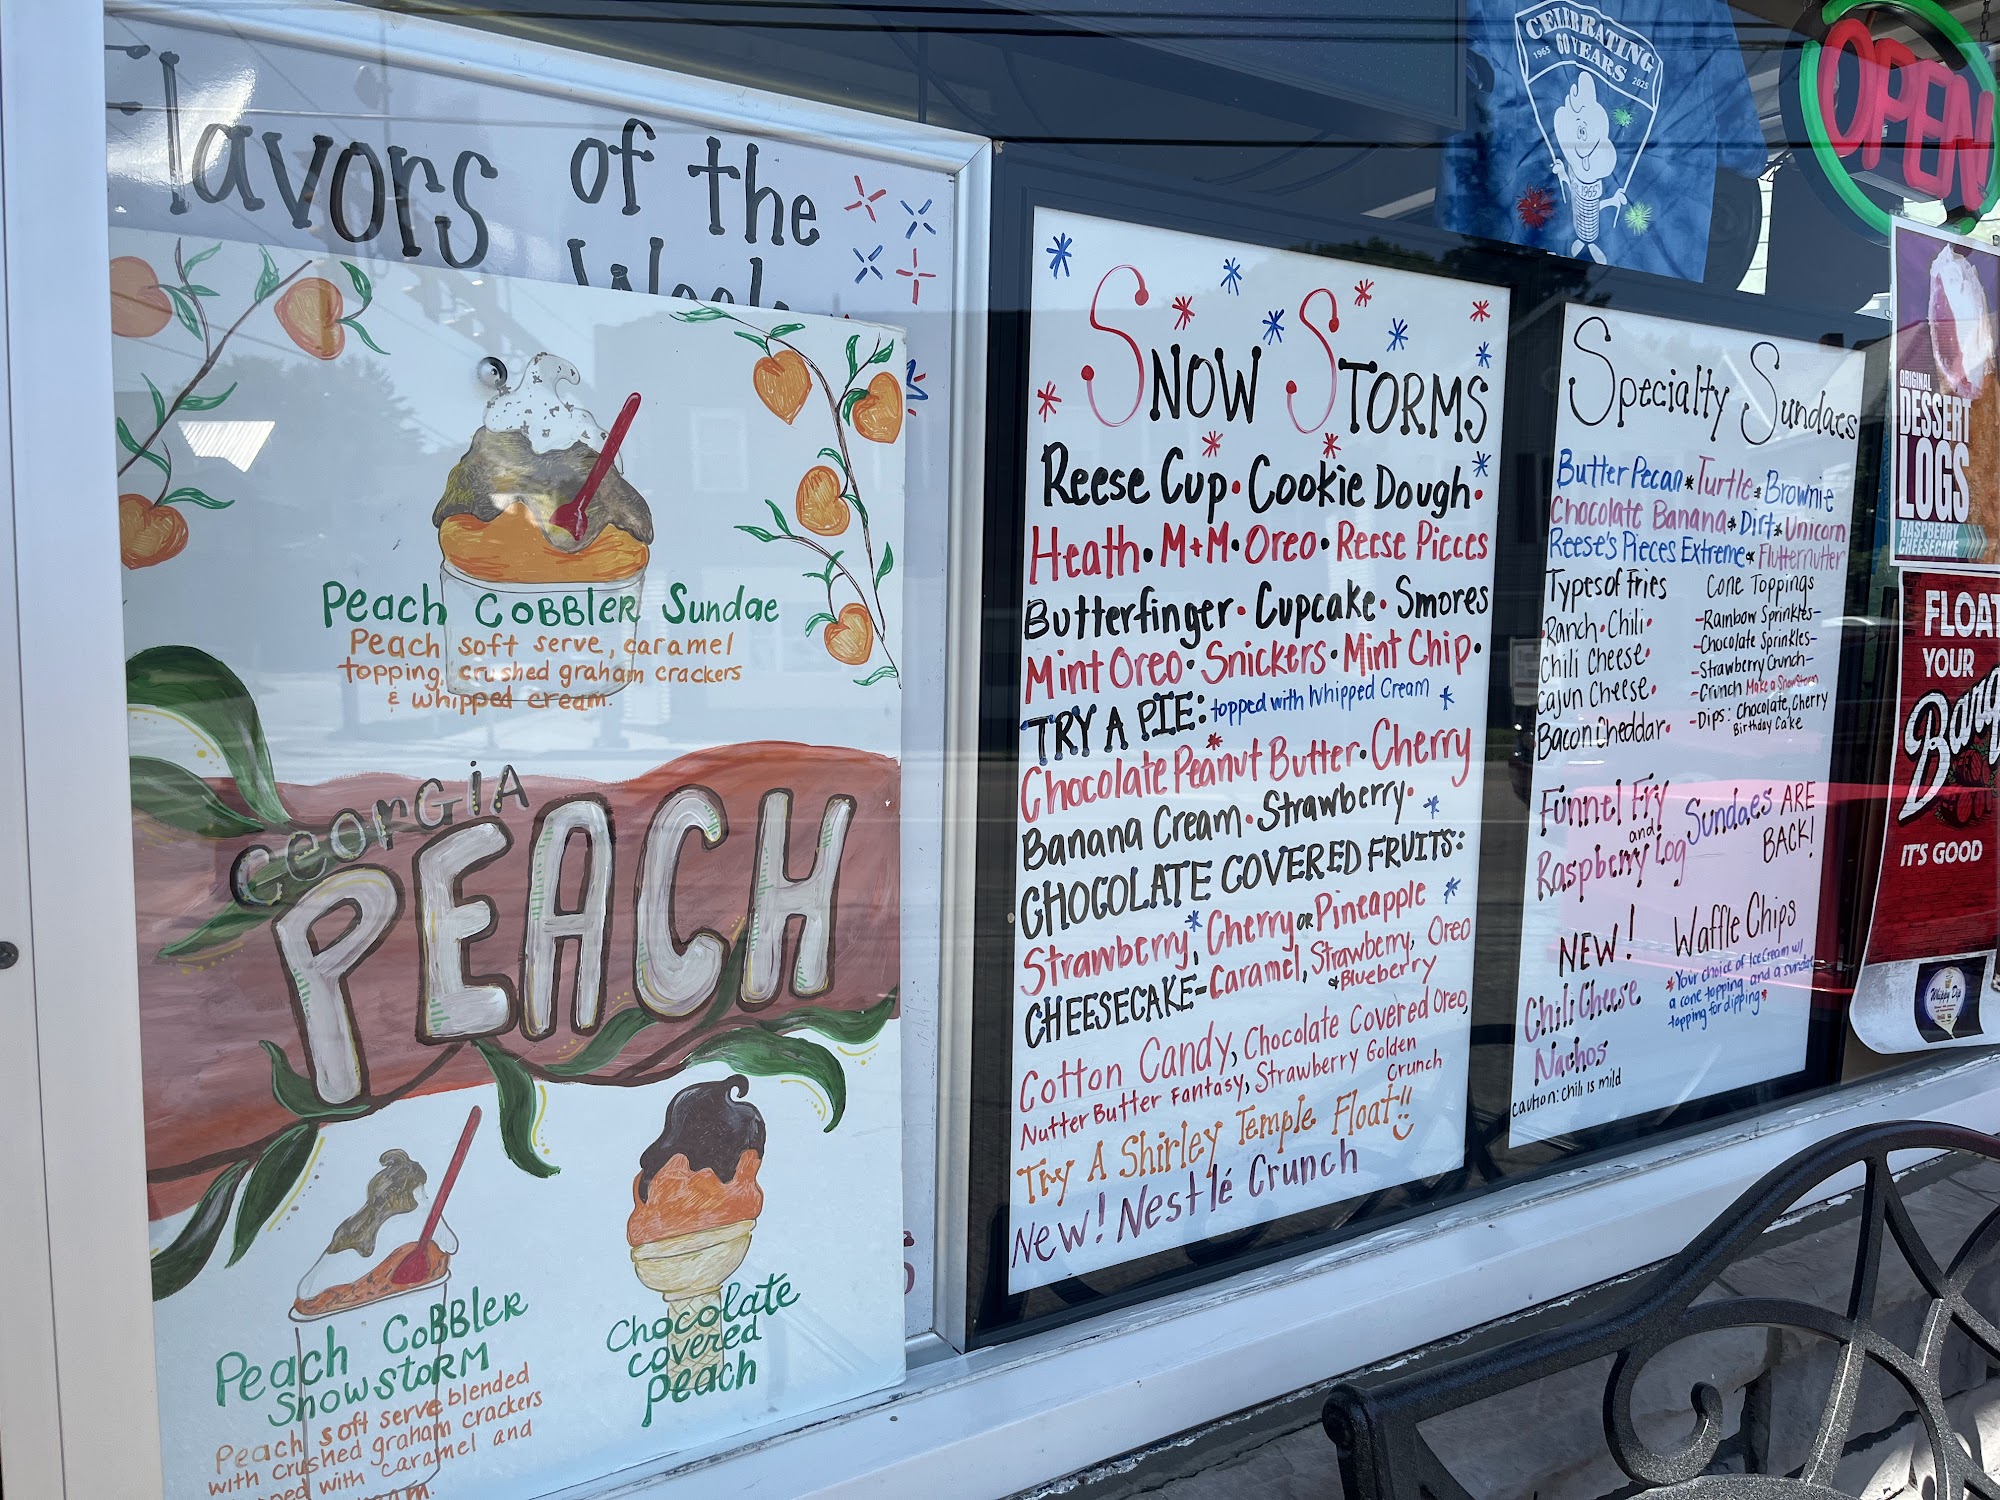 Flavors of the
Peach Cobbler Sundae
Peach soft serve, caramel
topping, crushed graham crackers
& whipped cream.
Georgia
PEACH
Peach Cobbler
Snowstorm
Peach soft serve blended
with crushed graham crackers
with caramel and
Chocolate
covered
peach
Snow Storms
Reese Cup • Cookie Dough •
Heath • M+M • Oreo • Reese Pieces
Butterfinger • Cupcake • Smores
Mint Oreo • Snickers • Mint Chip •
TRY A PIE: topped with Whipped Cream
Chocolate Peanut Butter • Cherry
Banana Cream • Strawberry •
CHOCOLATE COVERED FRUITS:
Strawberry, Cherry or Pineapple
CHEESECAKE - Caramel, Strawberry, Oreo
+ Blueberry
Cotton Candy, Chocolate Covered Oreo,
Nutter Butter Fantasy, Strawberry Golden
Crunch
Try A Shirley Temple Float!!
New! Nestlé Crunch
Specialty Sundaes
Butter Pecan * Turtle * Brownie
Chocolate Banana * Dirt * Unicorn
Reese's Pieces Extreme * Flutternutter
Types of Fries
Ranch • Chili •
Chili Cheese •
Cajun Cheese •
Bacon Cheddar •
Cone Toppings
- Rainbow Sprinkles -
- Chocolate Sprinkles -
- Strawberry Crunch -
- Crunch Make a Snowstorm
- Dips: Chocolate, Cherry
Birthday Cake
Funnel Fry
and
Raspberry Log
Sundaes ARE
BACK!
NEW!
Chili Cheese
Nachos
caution: chili is mild
Waffle Chips
*Your choice of Ice Cream w/
a cone topping and a sundae
topping for dipping*
CELEBRATING
1965 60 YEARS 2025
1965
OPEN
ORIGINAL
DESSERT
LOGS
RASPBERRY
CHEESECAKE
FLOAT
YOUR
Barq
IT'S GOOD
Whippy Dip